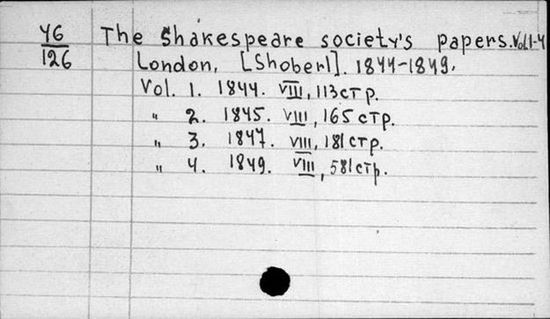 46 The Shakespeare society's papers. Vol. 1-4
126 London, [Shoberl]. 1844-1849.
Vol. 1. 1844. VIII, 113 стр.
" 2. 1845. VIII, 165 стр.
" 3. 1847. VIII, 181 стр.
" 4. 1849. VIII, 581 стр.